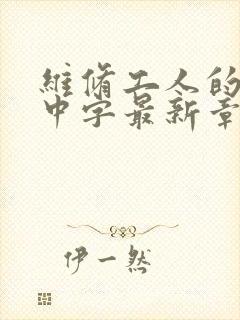 維脩工人的
中字最新章
伊一然